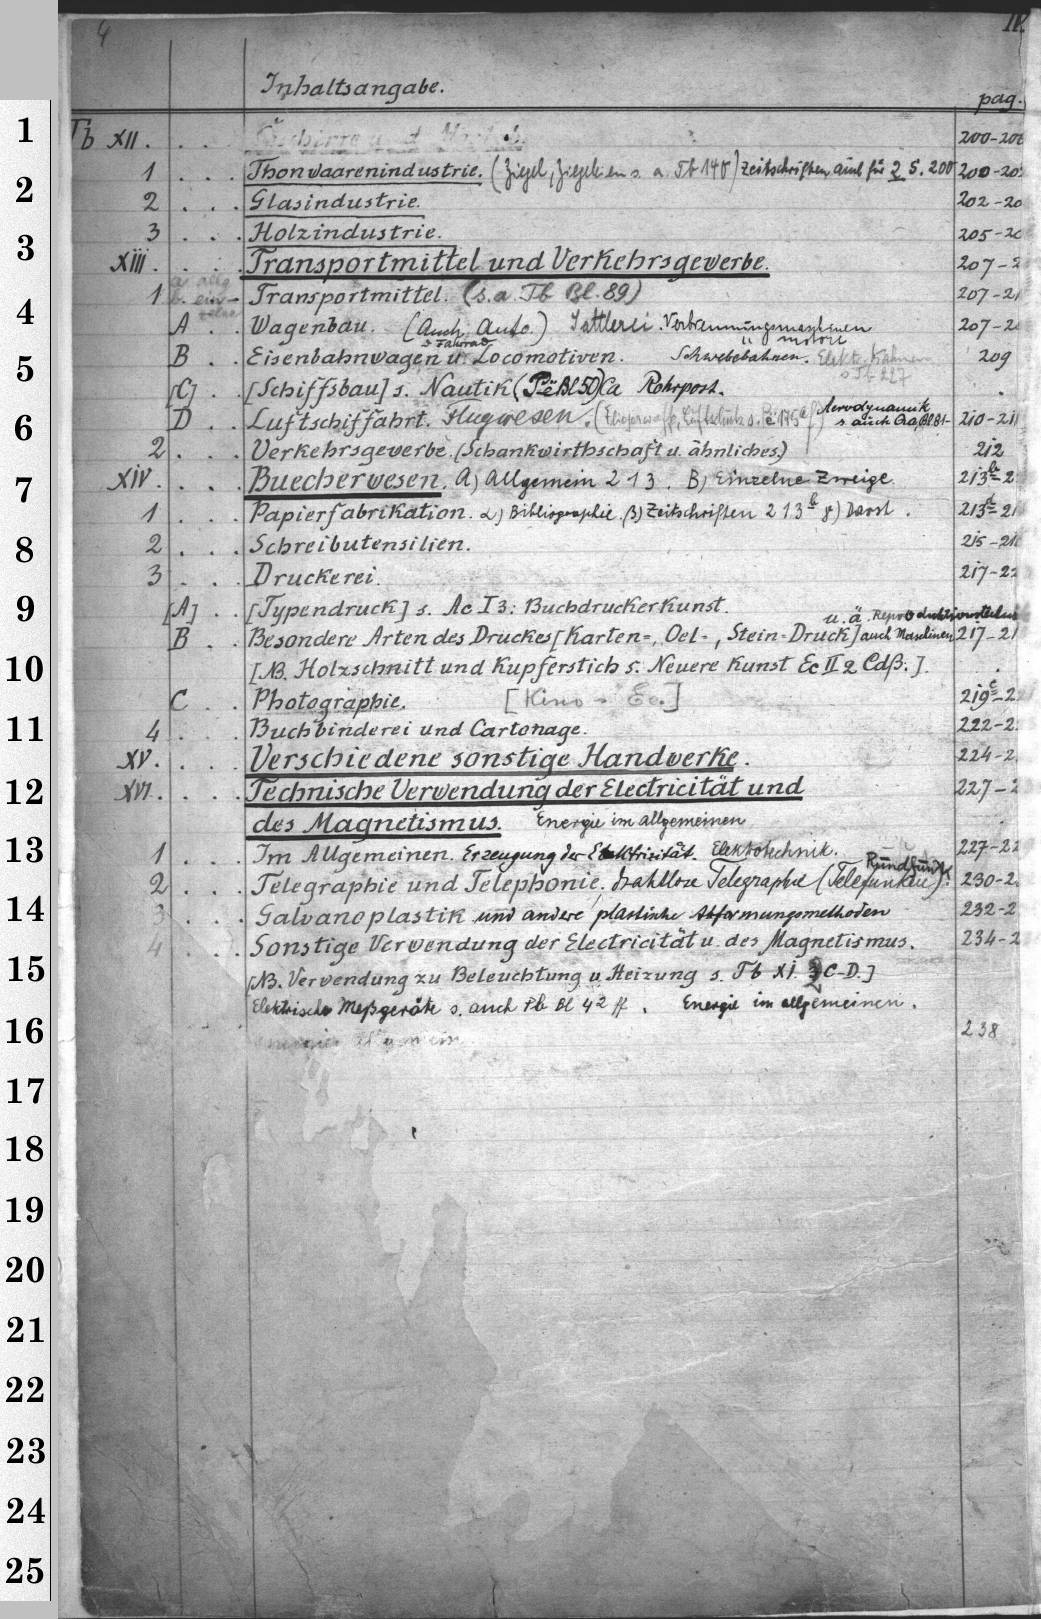 4 IV.
Inhaltsangabe. pag.
1 Tb XII. . . . 200-20
1 . . . Thonwaarenindustrie. (Ziegel, Ziegeleien s. a. Tb 140) Zeitschriften auch für 2 S. 200 200-20
2 2 . . . Glasindustrie. 202-20
3 3 . . . Holzindustrie. 205-20
XIII. . . . Transportmittel und Verkehrsgewerbe. 207-2
a allg
4 1 b. einzelne Transportmittel. (s. a. Tb Bl. 89) 207-21
A . . Wagenbau. (Auch Auto.) Sattlerei. Verbrennungsmaschinen 207-20
s Fahrrad u motore
5 B . . Eisenbahnwagen u. Locomotiven. Schwebebahnen. Elektr. Bahnen 209
s Tb 227
[C] . . [Schiffsbau] s. Nautik (Pe Bl 50) Ca Rohrpost.
6 D . . Luftschiffahrt. Flugwesen. Aerodynamik 210-211
s. auch Bl. 81-
2 . . . Verkehrsgewerbe. (Schankwirthschaft u. ähnliches.) 212
7 XIV. . . . Buecherwesen. A) Allgemein 213. B) Einzelne Zweige. 213b-2
1 . . . Papierfabrikation. α) Bibliographie. β) Zeitschriften 213b γ) Darst. 213d-21
8 2 . . . Schreibutensilien. 215-21
3 . . . Druckerei. 217-22
9 [A] . . [Typendruck] s. Ac I 3: Buchdruckerkunst.
u. ä. Reproduktionstechn
B . . Besondere Arten des Druckes [Karten=, Oel-, Stein=Druck] auch Maschinen 217-21
10 [NB. Holzschnitt und Kupferstich s. Neuere Kunst Ec II 2 Cdß.]
C . . Photographie. [Kino s Ec.] 219c-2
11 4 . . . Buchbinderei und Cartonage. 222-2
XV. . . . Verschiedene sonstige Handwerke. 224-2
12 XVI. . . . Technische Verwendung der Electricität und 227-2
des Magnetismus. Energie im allgemeinen
13 1 . . . Im Allgemeinen. Erzeugung der Elektrizität. Elektrotechnik. 227-22
Rundfunk
2 . . . Telegraphie und Telephonie, drahtlose Telegraphie (Telefunken). 230-2
14 3 . . . Galvanoplastik und andere plastische Abformungsmethoden 232-2
4 . . . Sonstige Verwendung der Electricität u. des Magnetismus. 234-2
15 [NB. Verwendung zu Beleuchtung u. Heizung s. Tb XI. 2 C-D.]
Elektrische Meßgeräte s. auch Pb Bl 42 ff. Energie im allgemeinen.
16 238
17
18
19
20
21
22
23
24
25